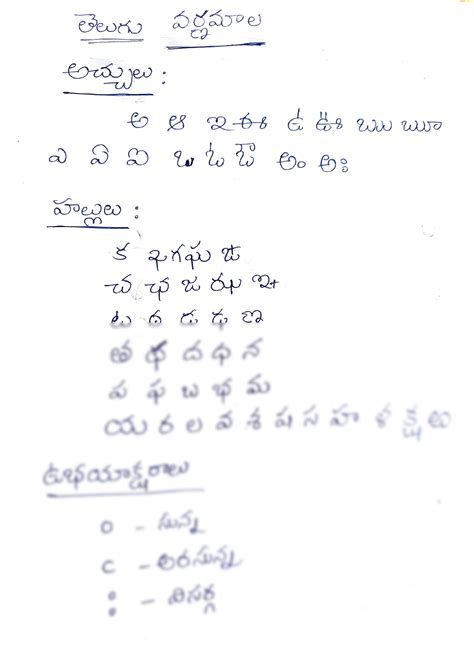 తెలుగు వర్ణమాల
అచ్చులు :
అ ఆ ఇ ఈ ఉ ఊ ఋ ౠ
ఎ ఏ ఐ ఒ ఓ ఔ అం అః
హల్లులు :
క ఖ గ ఘ ఙ
చ ఛ జ ఝ ఞ
ట ఠ డ ఢ ణ
త థ ద ధ న
ప ఫ బ భ మ
య ర ల వ శ ష స హ ళ క్ష
ఉభయాక్షరాలు
ం - సున్న
ఁ - అరసున్న
ః - విసర్గ